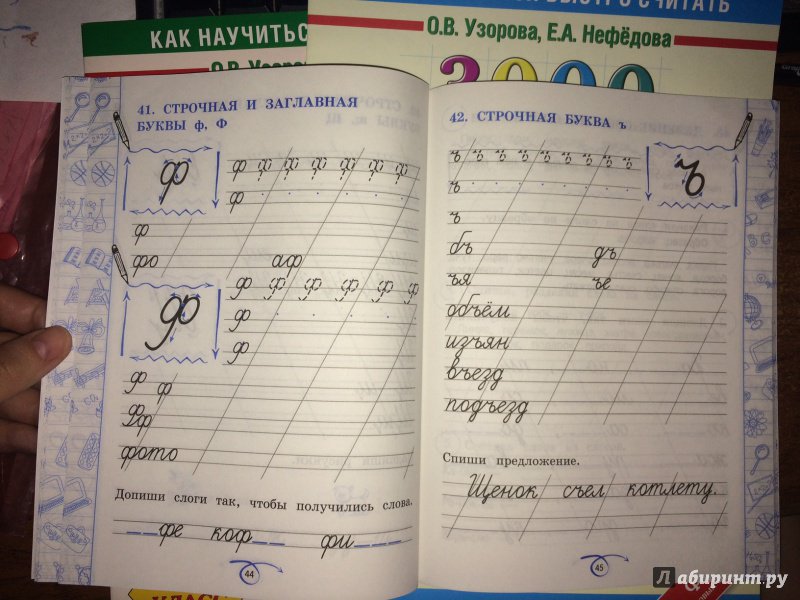 КАК НАУЧИТЬС
О.В. Узорова, Е.А. Нефёдова
41. СТРОЧНАЯ И ЗАГЛАВНАЯ
БУКВЫ ф, Ф
ф
ф ф ф ф ф ф ф
ф
ф
фо аф
Ф
Ф Ф Ф Ф Ф Ф
Ф
Ф
Ф Ф
фото
Допиши слоги так, чтобы получились слова.
_ _фе коф_ _ фи_ _ _ _
44
42. СТРОЧНАЯ БУКВА ъ
ъ ъ ъ ъ ъ ъ ъ ъ ъ
ъ
ъ
ъ
бъ дъ
ъя ъе
объём
изъян
въезд
подъезд
Спиши предложение.
Щенок съел котлету.
45
Лабиринт.ру